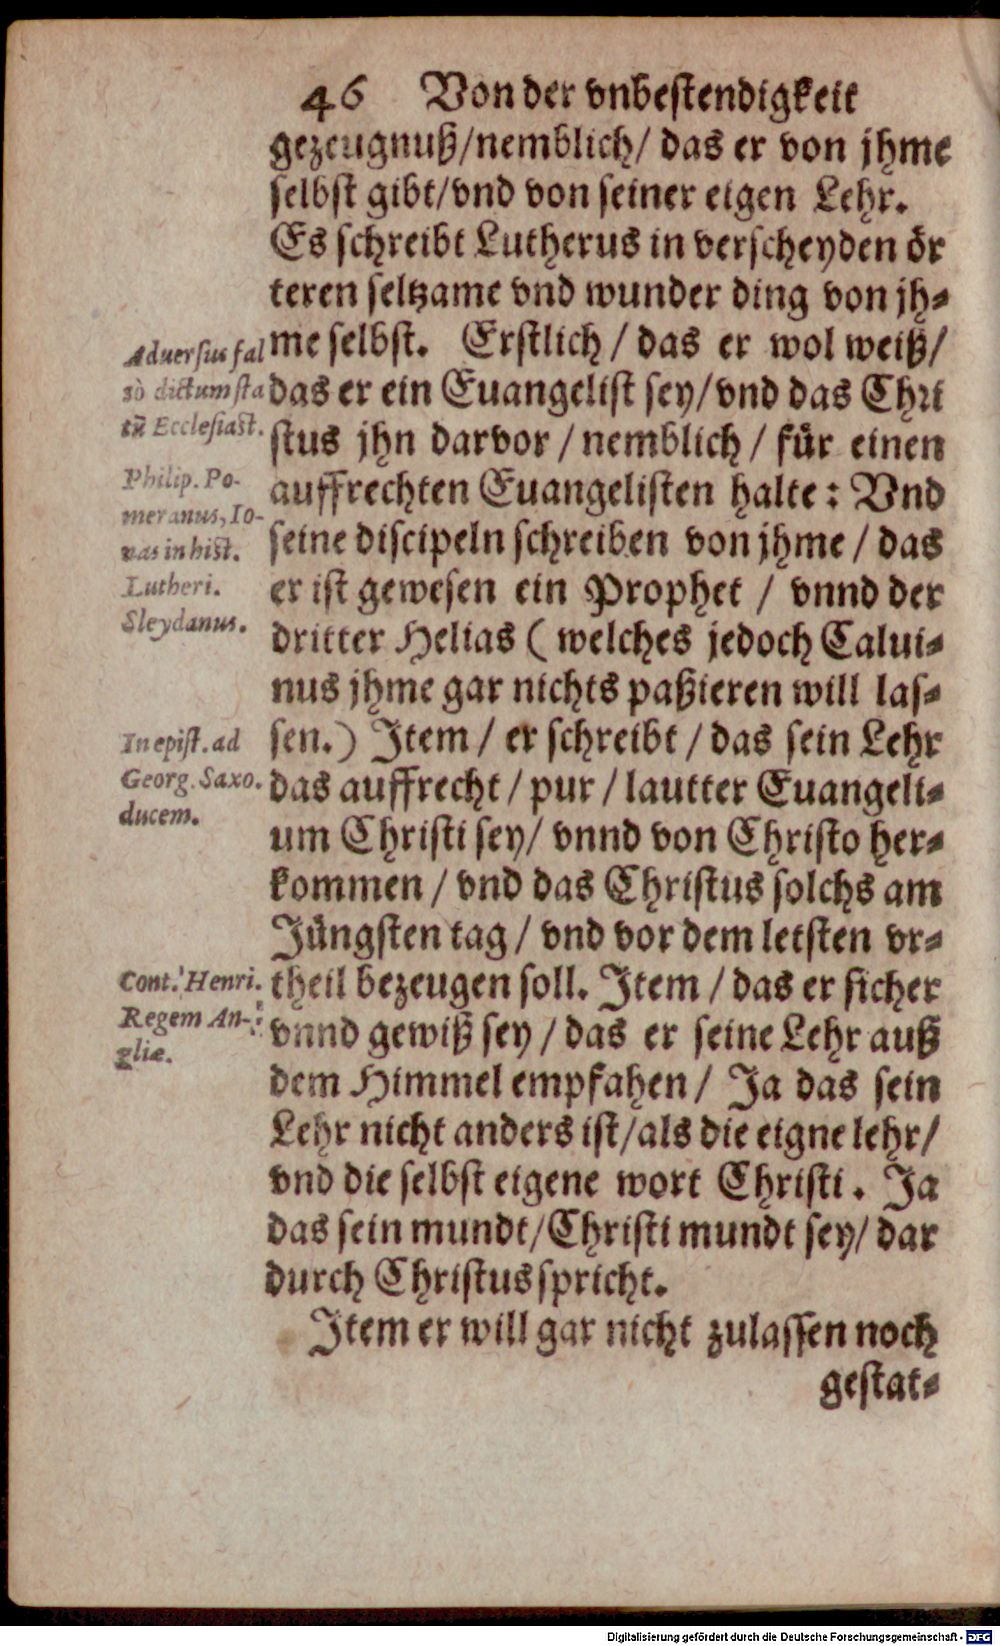 46 Von der vnbestendigkeit
gezeugnuß/nemblich/ das er von jhme
selbst gibt/vnd von seiner eigen Lehr.
Es schreibt Lutherus in verscheyden ör
teren seltzame vnd wunder ding von jh-
me selbst. Erstlich / das er wol weiß/
das er ein Euangelist sey/vnd das Chri
stus jhn darvor / nemblich / für einen
auffrechten Euangelisten halte: Vnd
seine discipeln schreiben von jhme / das
er ist gewesen ein Prophet / vnnd der
dritter Helias ( welches jedoch Calui-
nus jhme gar nichts paßieren will las-
sen.) Item / er schreibt / das sein Lehr
das auffrecht / pur / lautter Euangeli-
um Christi sey/ vnnd von Christo her-
kommen / vnd das Christus solchs am
Jüngsten tag / vnd vor dem letsten vr-
theil bezeugen soll. Item / das er sicher
vnnd gewiß sey / das er seine Lehr auß
dem Himmel empfahen/ Ja das sein
Lehr nicht anders ist/als die eigne lehr/
vnd die selbst eigene wort Christi. Ja
das sein mundt/Christi mundt sey/ dar
durch Christus spricht.
Item er will gar nicht zulassen noch
gestat-
Aduersus fal
sò dictum sta
tũ Ecclesiast.
Philip. Po-
meranus, Io-
nas in hist.
Lutheri.
Sleydanus.
In epist. ad
Georg. Saxo.
ducem.
Cont. Henri.
Regem An-
gliæ.
Digitalisierung gefördert durch die Deutsche Forschungsgemeinschaft - DFG